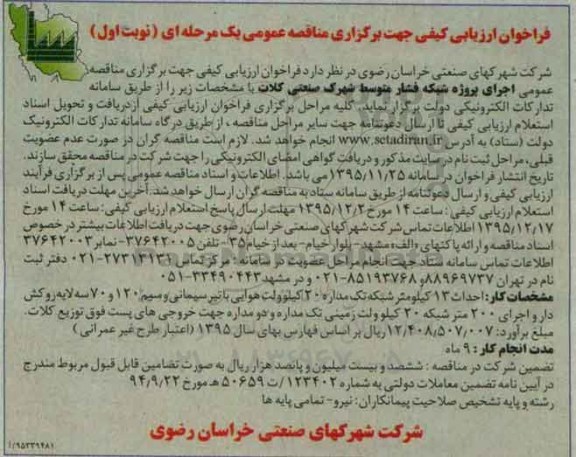 فراخوان ارزیابی کیفی جهت برگزاری مناقصه عمومی یک مرحله ای (نوبت اول)
شرکت شهرکهای صنعتی خراسان رضوی در نظر دارد فراخوان ارزیابی کیفی جهت برگزاری مناقصه
عمومی اجرای پروژه شبکه فشار متوسط شهرک صنعتی کلات با مشخصات زیر را از طریق سامانه
تدارکات الکترونیکی دولت برگزار نماید. کلیه مراحل برگزاری فراخوان ارزیابی کیفی از دریافت و تحویل اسناد
استعلام ارزیابی کیفی تا ارسال دعوتنامه جهت سایر مراحل مناقصه ، از طریق درگاه سامانه تدارکات الکترونیک
دولت (ستاد) به آدرس www.setadiran.ir انجام خواهد شد. لازم است مناقصه گران در صورت عدم عضویت
قبلی، مراحل ثبت نام در سایت مذکور و دریافت گواهی امضای الکترونیکی را جهت شرکت در مناقصه محقق سازند.
تاریخ انتشار فراخوان در سامانه ۱۳۹۵/۱۱/۲۵ می باشد. اطلاعات و اسناد مناقصه عمومی پس از برگزاری فرآیند
ارزیابی کیفی و ارسال دعوتنامه از طریق سامانه ستاد به مناقصه گران ارسال خواهد شد. آخرین مهلت دریافت اسناد
استعلام ارزیابی کیفی : ساعت ۱۴ مورخ ۱۳۹۵/۱۲/۲ مهلت ارسال پاسخ استعلام ارزیابی کیفی: ساعت ۱۴ مورخ
۱۳۹۵/۱۲/۱۷ اطلاعات تماس شرکت شهرکهای صنعتی خراسان رضوی جهت دریافت اطلاعات بیشتر در خصوص
اسناد مناقصه و ارائه پاکتهای «الف» مشهد- بلوار خیام- بعد از خیام ۳۵- تلفن ۳۷۶۴۲۰۰۵- نمابر ۳۷۶۴۲۰۰۳
اطلاعات تماس سامانه ستاد جهت انجام مراحل عضویت در سامانه : مرکز تماس ۲۷۳۱۳۱۳۱-۰۲۱ دفتر ثبت
نام در تهران ۸۸۹۶۹۷۳۷ و ۸۵۱۹۳۷۶۸-۰۲۱ و در مشهد ۳۳۴۹۰۴۴۳-۰۵۱
مشخصات کار: احداث ۱۳ کیلومتر شبکه تک مداره ۲۰ کیلوولت هوایی با تیر سیمانی و سیم ۱۲۰ و ۷۰ سه لایه روکش
دار و اجرای ۲۰۰ متر شبکه ۲۰ کیلوولت زمینی تک مداره و دو مداره جهت خروجی های پست فوق توزیع کلات.
مبلغ برآورد: ۱۲/۴۰۸/۵۰۷/۰۰۷ ریال بر اساس فهارس بهای سال ۱۳۹۵ (اعتبار طرح غیر عمرانی)
مدت انجام کار : ۹ ماه
تضمین شرکت در مناقصه : ششصد و بیست میلیون و پانصد هزار ریال به صورت تضامین قابل قبول مربوط مندرج
در آیین نامه تضمین معاملات دولتی به شماره ۱۲۳۴۰۲/ت ۵۰۶۵۹ هـ مورخ ۹۴/۹/۲۲
رشته و پایه تشخیص صلاحیت پیمانکاران: نیرو- تمامی پایه ها
شرکت شهرکهای صنعتی خراسان رضوی
۱/۹۵۳۳۹۴۸۱